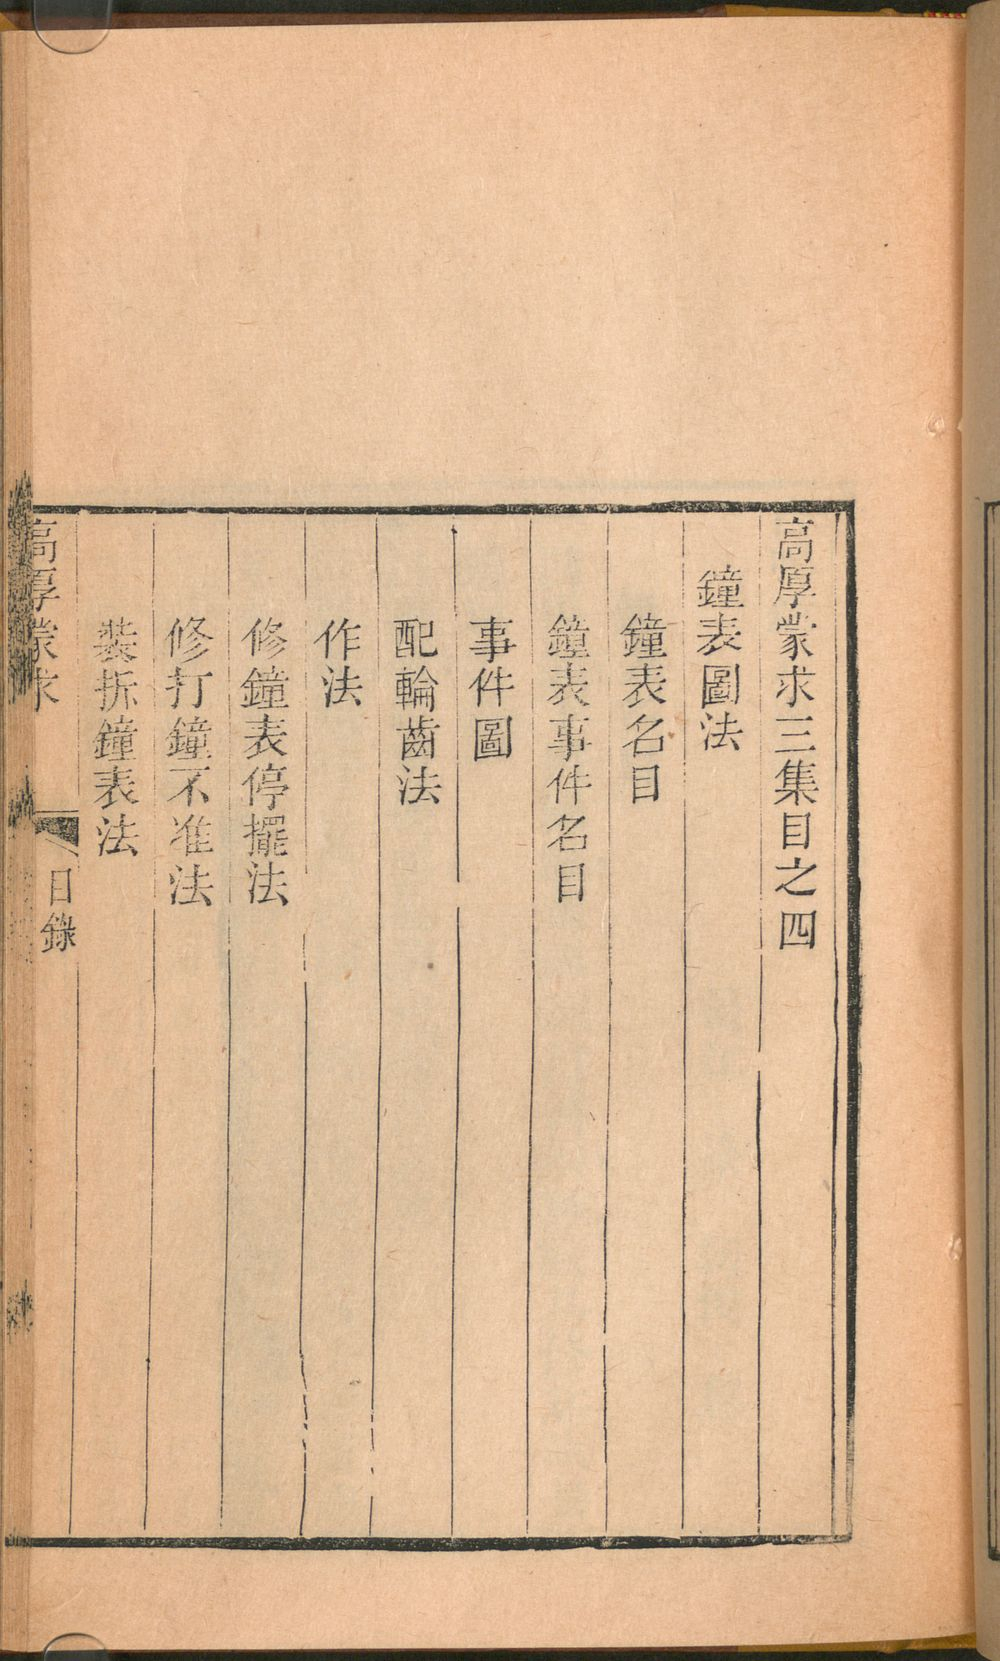 高厚蒙求三集目之四
鐘表圖法
鐘表名目
鐘表事件名目
事件圖
配輪齒法
作法
修鐘表停擺法
修打鐘不准法
裝拆鐘表法
高厚蒙求
目錄